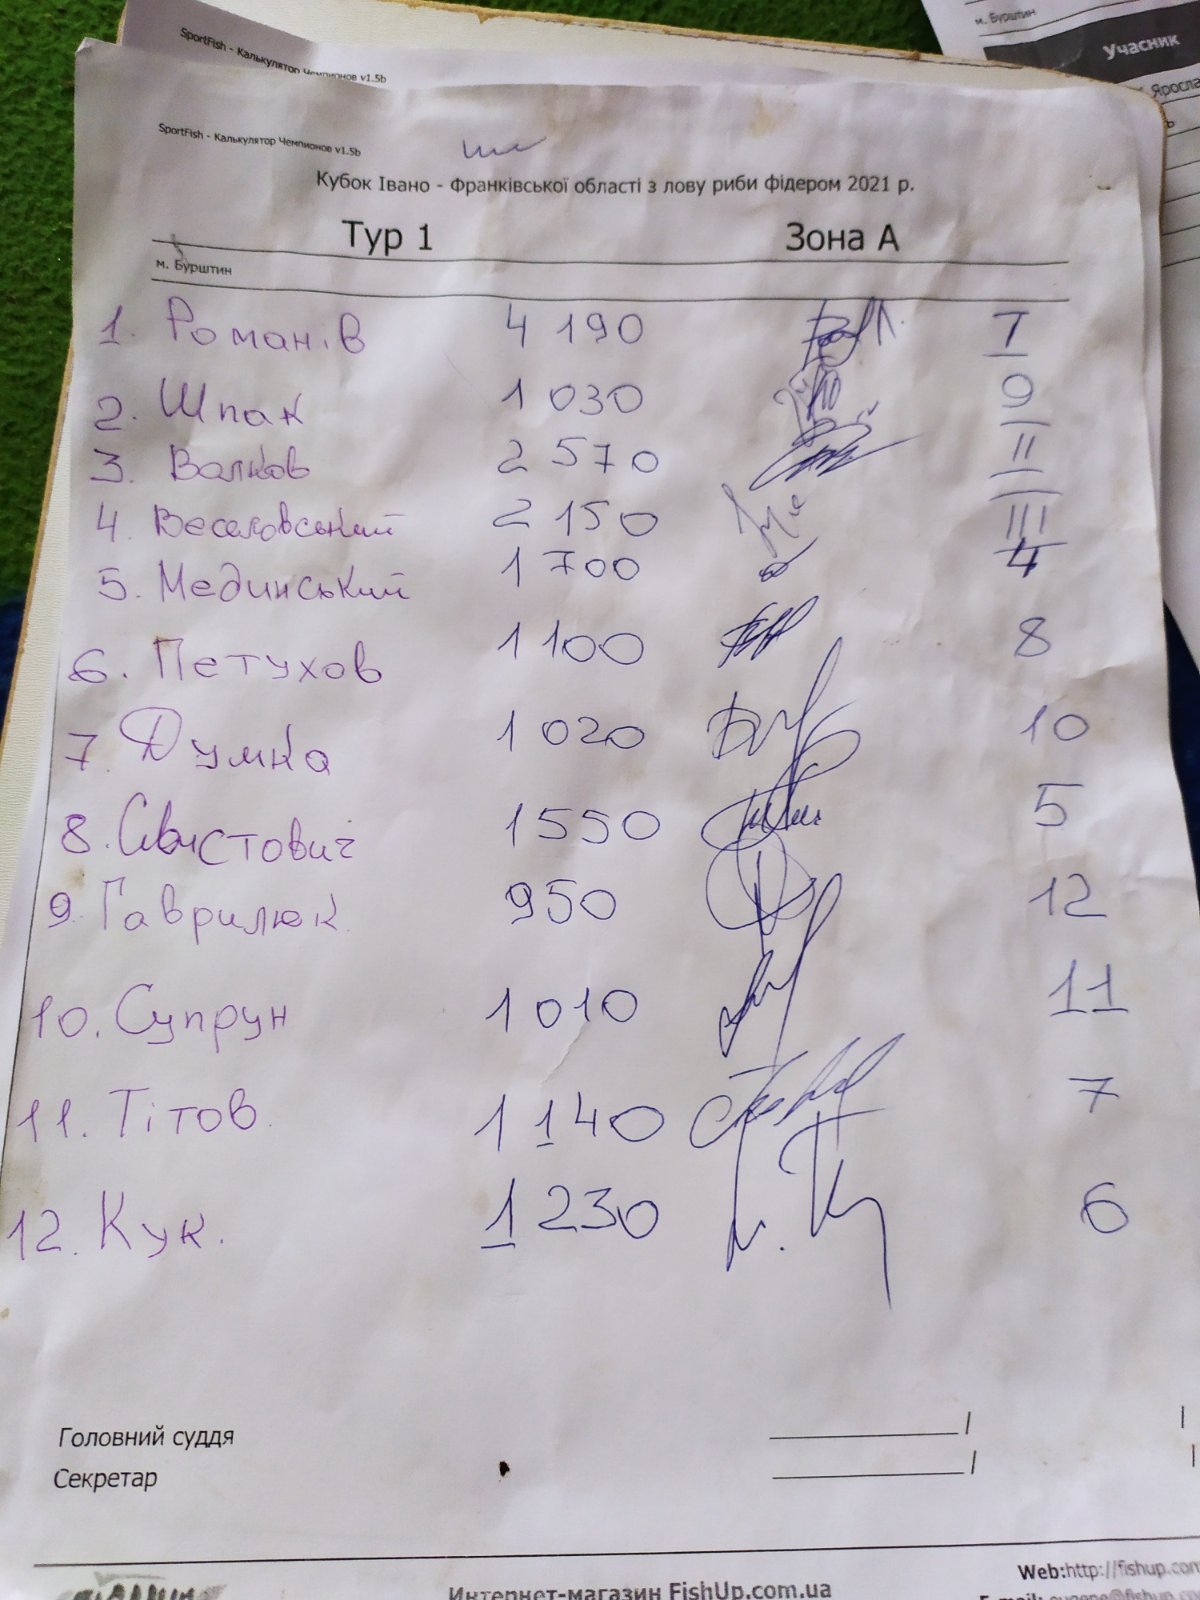 м. Бурштин
Учасник
SportFish - Калькулятор Чемпионов v1.5b
SportFish - Калькулятор Чемпионов v1.5b
Кубок Івано - Франківської області з лову риби фідером 2021 р.
Тур 1 Зона А
м. Бурштин
1. Романів 4 190 I
2. Шпак 1 030 9
3. Валков 2 570 II
4. Веселовський 2 150 III
5. Мединський 1 700 4
6. Петухов 1 100 8
7. Думка 1 020 10
8. Свистович 1550 5
9. Гаврилюк 950 12
10. Супрун 1 010 11
11. Тітов 1 140 7
12. Кук. 1 230 6
Головний суддя
Секретар
Web:http://fishup.com
Интернет-магазин FishUp.com.ua